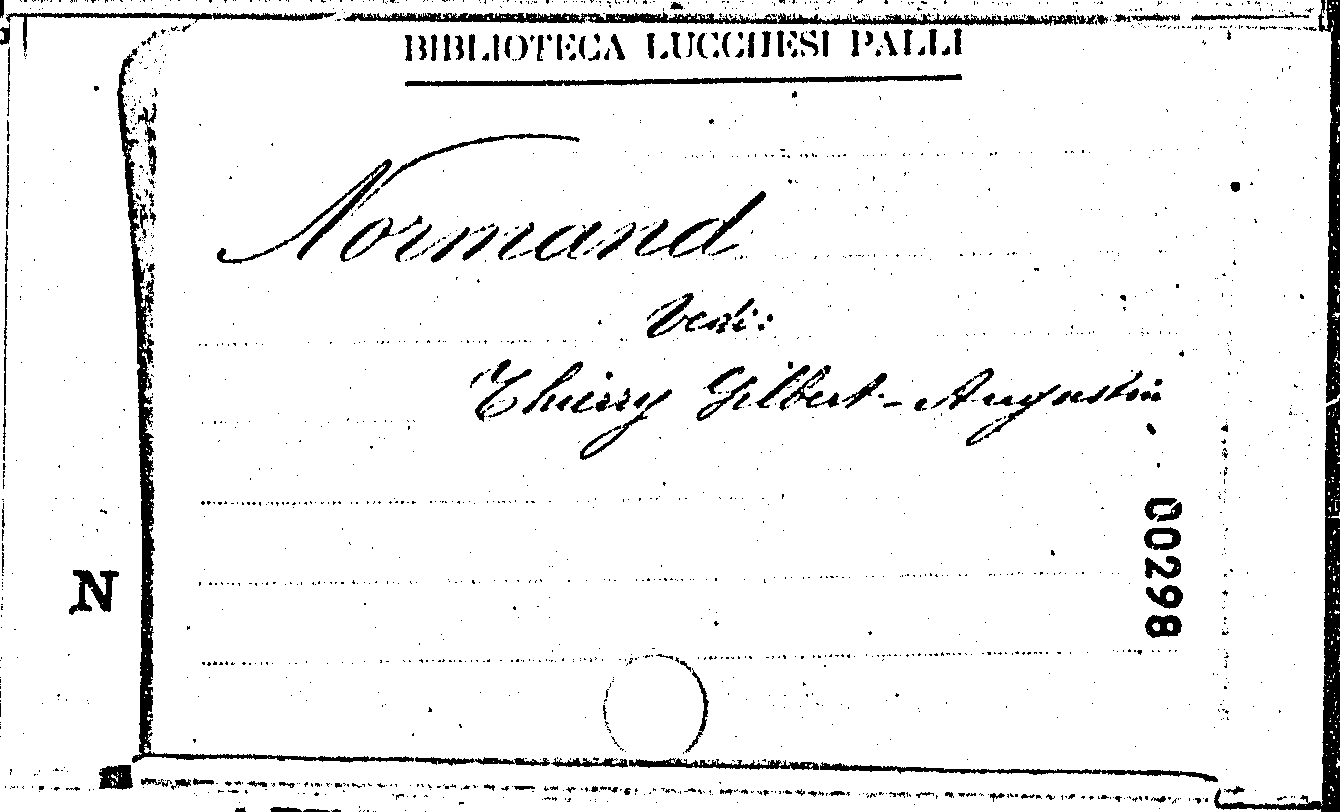 BIBLIOTECA LUCCHESI PALLI
Normand
Vedi:
Thierry Gilbert-Augustin
00298
N